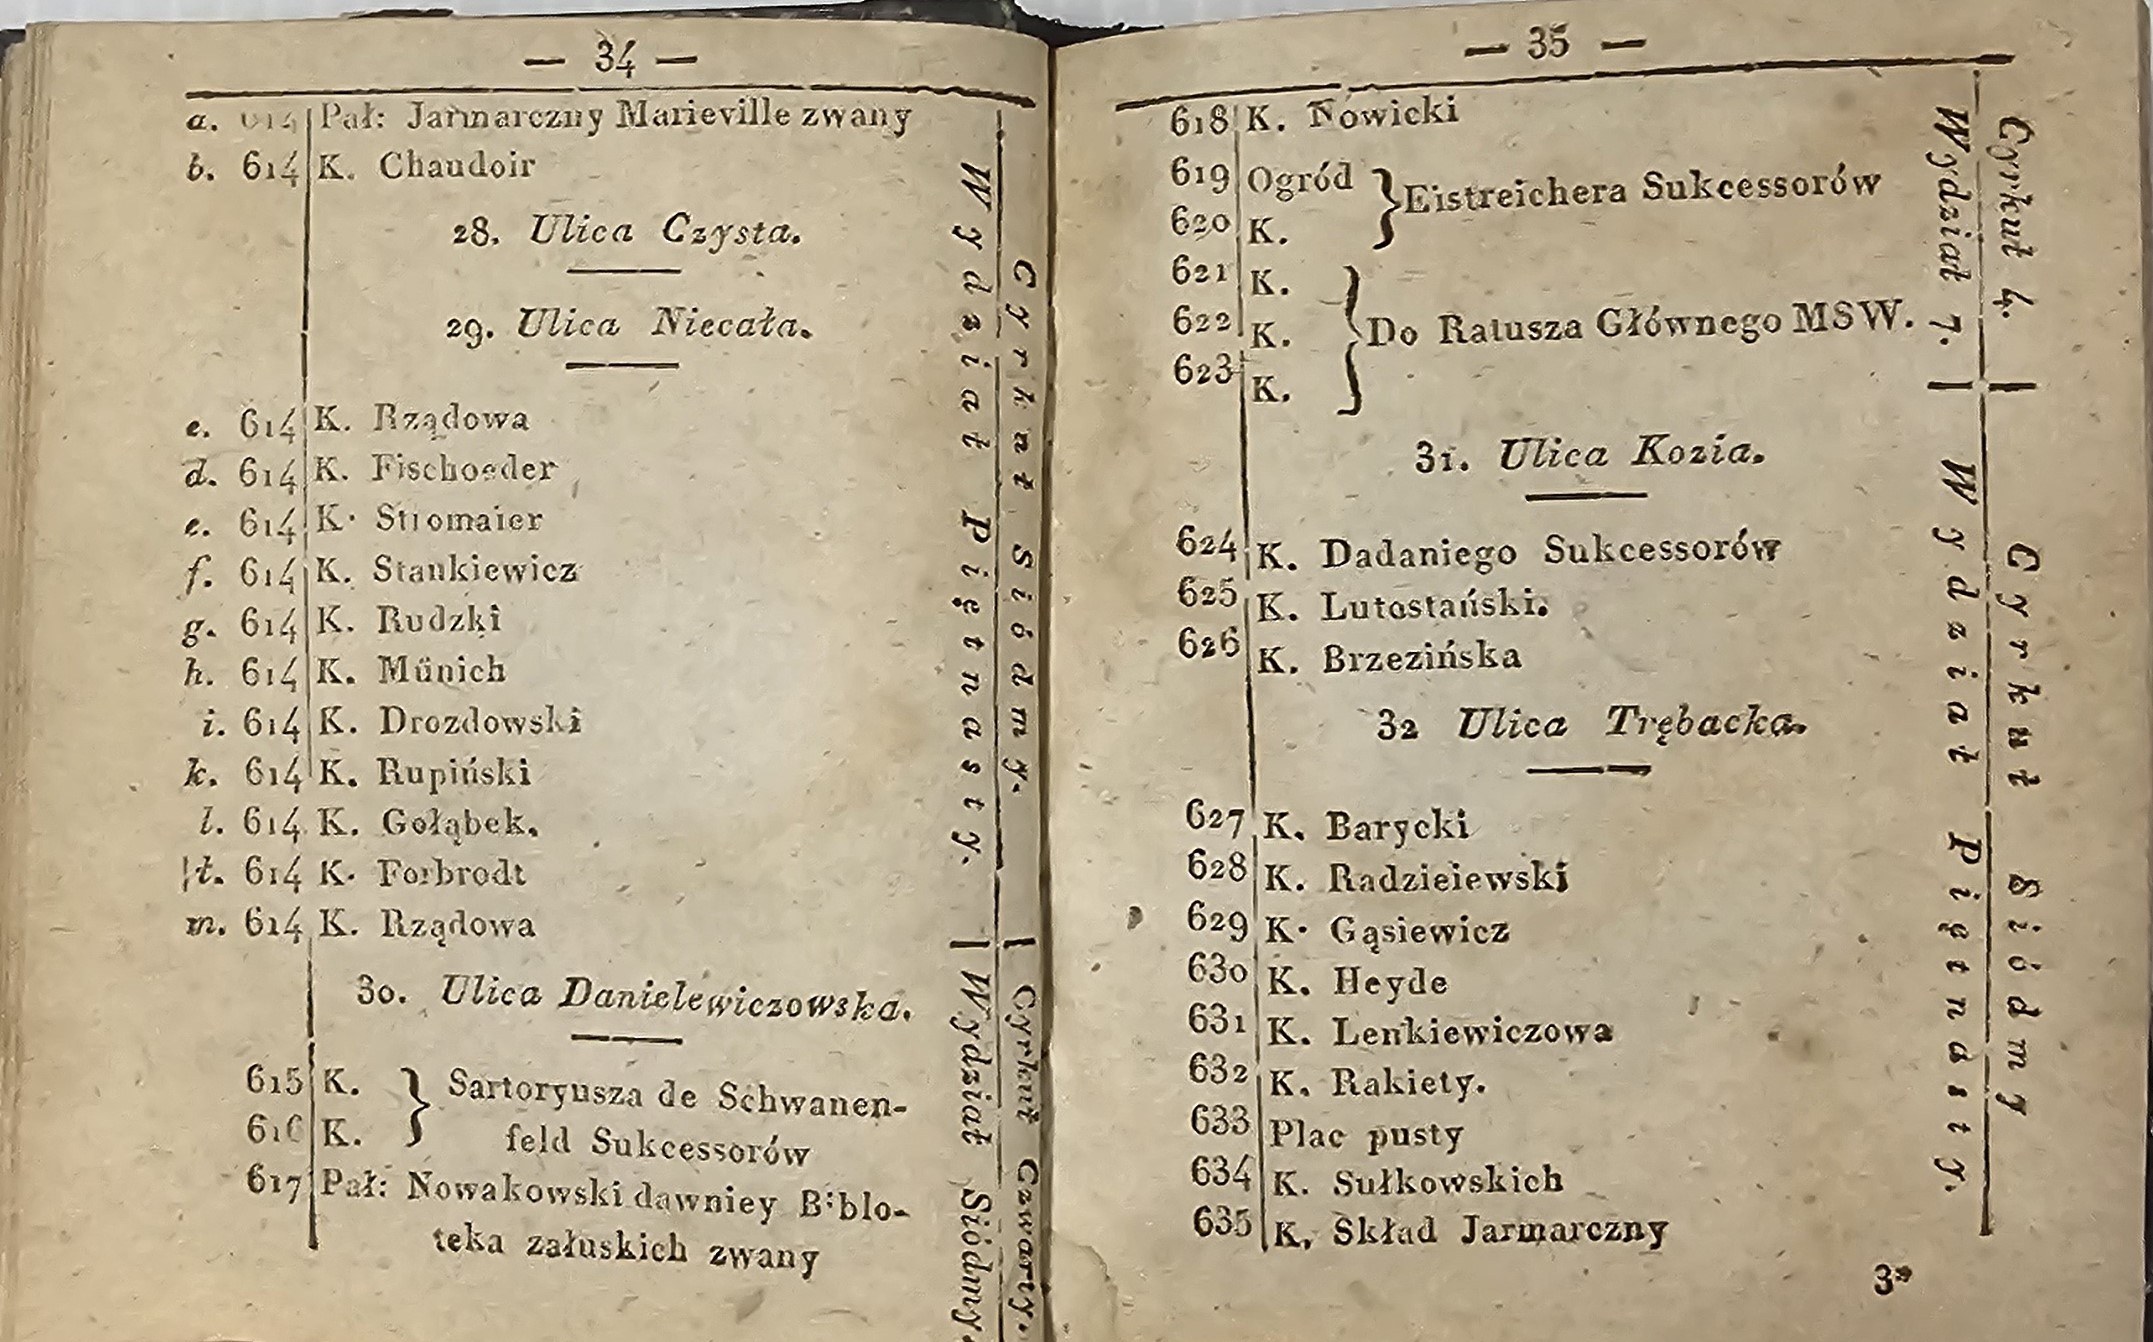 — 34 —
a. 614 Pał: Jarmarczny Marieville zwany
b. 614 K. Chaudoir
28. Ulica Czysta.
29. Ulica Niecała.
e. 614 K. Rządowa
d. 614 K. Fischoeder
e. 614 K. Stromaier
f. 614 K. Stankiewicz
g. 614 K. Rudzki
h. 614 K. Münich
i. 614 K. Drozdowski
k. 614 K. Rupiński
l. 614 K. Gołąbek.
ł. 614 K. Forbrodt
m. 614 K. Rządowa
30. Ulica Danielewiczowska.
615 K. } Sartoryusza de Schwanen-
616 K. } feld Sukcessorów
617 Pał: Nowakowski dawniey Biblo-
teka załuskich zwany
Wydział Piętnasty.
Cyrkuł Siódmy.
Wydział Siódmy.
Cyrkuł Czwarty.
— 35 —
618 K. Nowicki
619 Ogród } Eistreichera Sukcessorów
620 K.
621 K.
622 K. } Do Ratusza Głównego MSW.
623 K.
31. Ulica Kozia.
624 K. Dadaniego Sukcessorów
625 K. Lutostański.
626 K. Brzezińska
32 Ulica Trębacka.
627 K. Barycki
628 K. Radzieiewski
629 K. Gąsiewicz
630 K. Heyde
631 K. Lenkiewiczowa
632 K. Rakiety.
633 Plac pusty
634 K. Sułkowskich
635 K. Skład Jarmarczny
3*
Cyrkuł 4.
Wydział 7.
Cyrkuł Siódmy
Wydział Piętnasty.